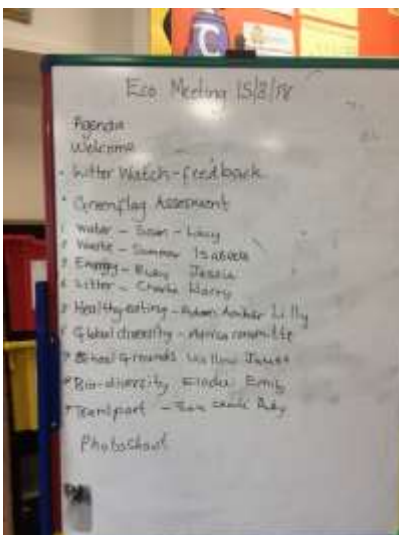 Eco Meeting 15/3/18
Agenda
Welcome
• Litter Watch - feedback
• Greenflag Assesment
1 Water - Lucy
2 Waste - Summer Isabella
3 Energy - Ruby Jessie
4 Litter - Charlie Harry
5 Healthy eating - Amber Lilly
6 Global diversity -
7 School Grounds James
8 Bio-diversity Elodie Emily
9 - Ruby
Photoshoot